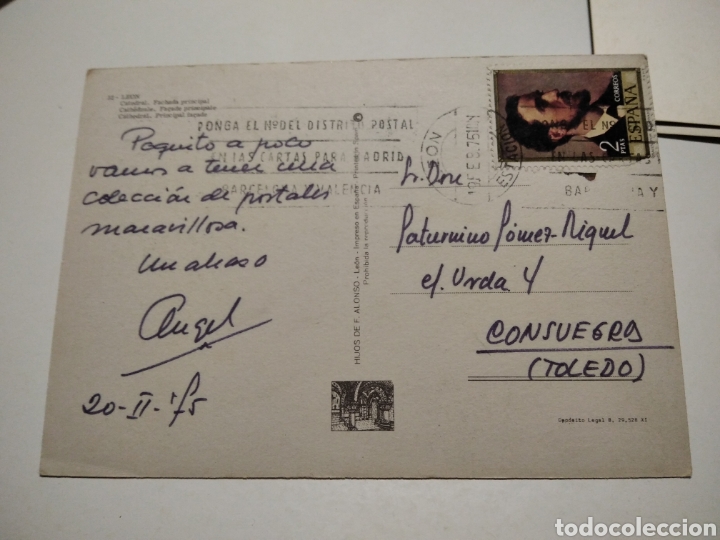 32 - LEON
Catedral, Fachada principal
Cathédrale, Façade principale
Cathedral, Principal façade
PONGA EL Nº DEL DISTRITO POSTAL
EN LAS CARTAS PARA MADRID
BARCELONA Y VALENCIA
Poquito a poco
vamos a tener una
colección de postales
maravillosa.
Un abrazo
Angel
20-II-'75
HIJOS DE F. ALONSO - León - Impreso en España
Prohibida la reproducción
LEON
CORREOS
ESPAÑA
2 PTAS
Sr. Don
Saturnino Gómez-Miguel
c/. Urda 4
CONSUEGRA
(TOLEDO)
Depósito Legal B. 29.524 XI
todocoleccion